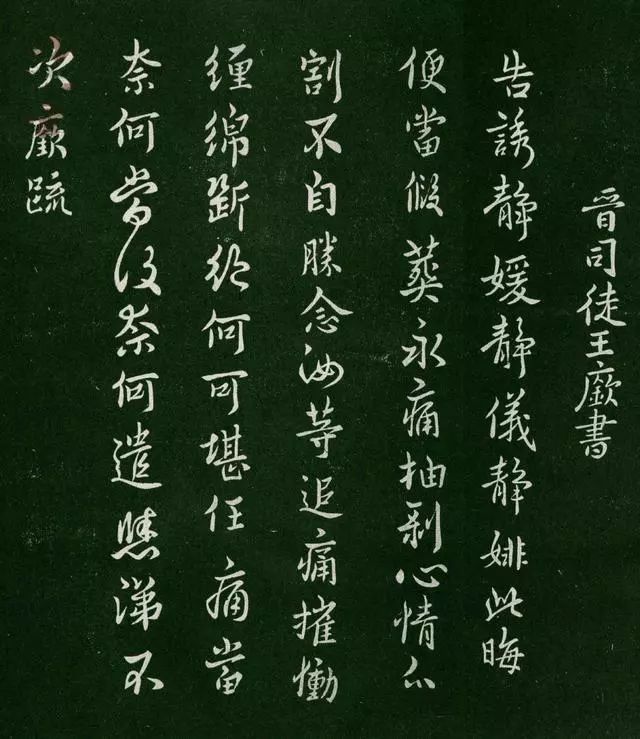 晉司徒王廞書
告誘靜媛靜儀靜姚此晦
便當假葬永痛抽剝心情分
割不自勝念汝等追痛摧慟
纏綿斷絕何可堪任痛當
奈何當復奈何遣慘涕不
次廞疏